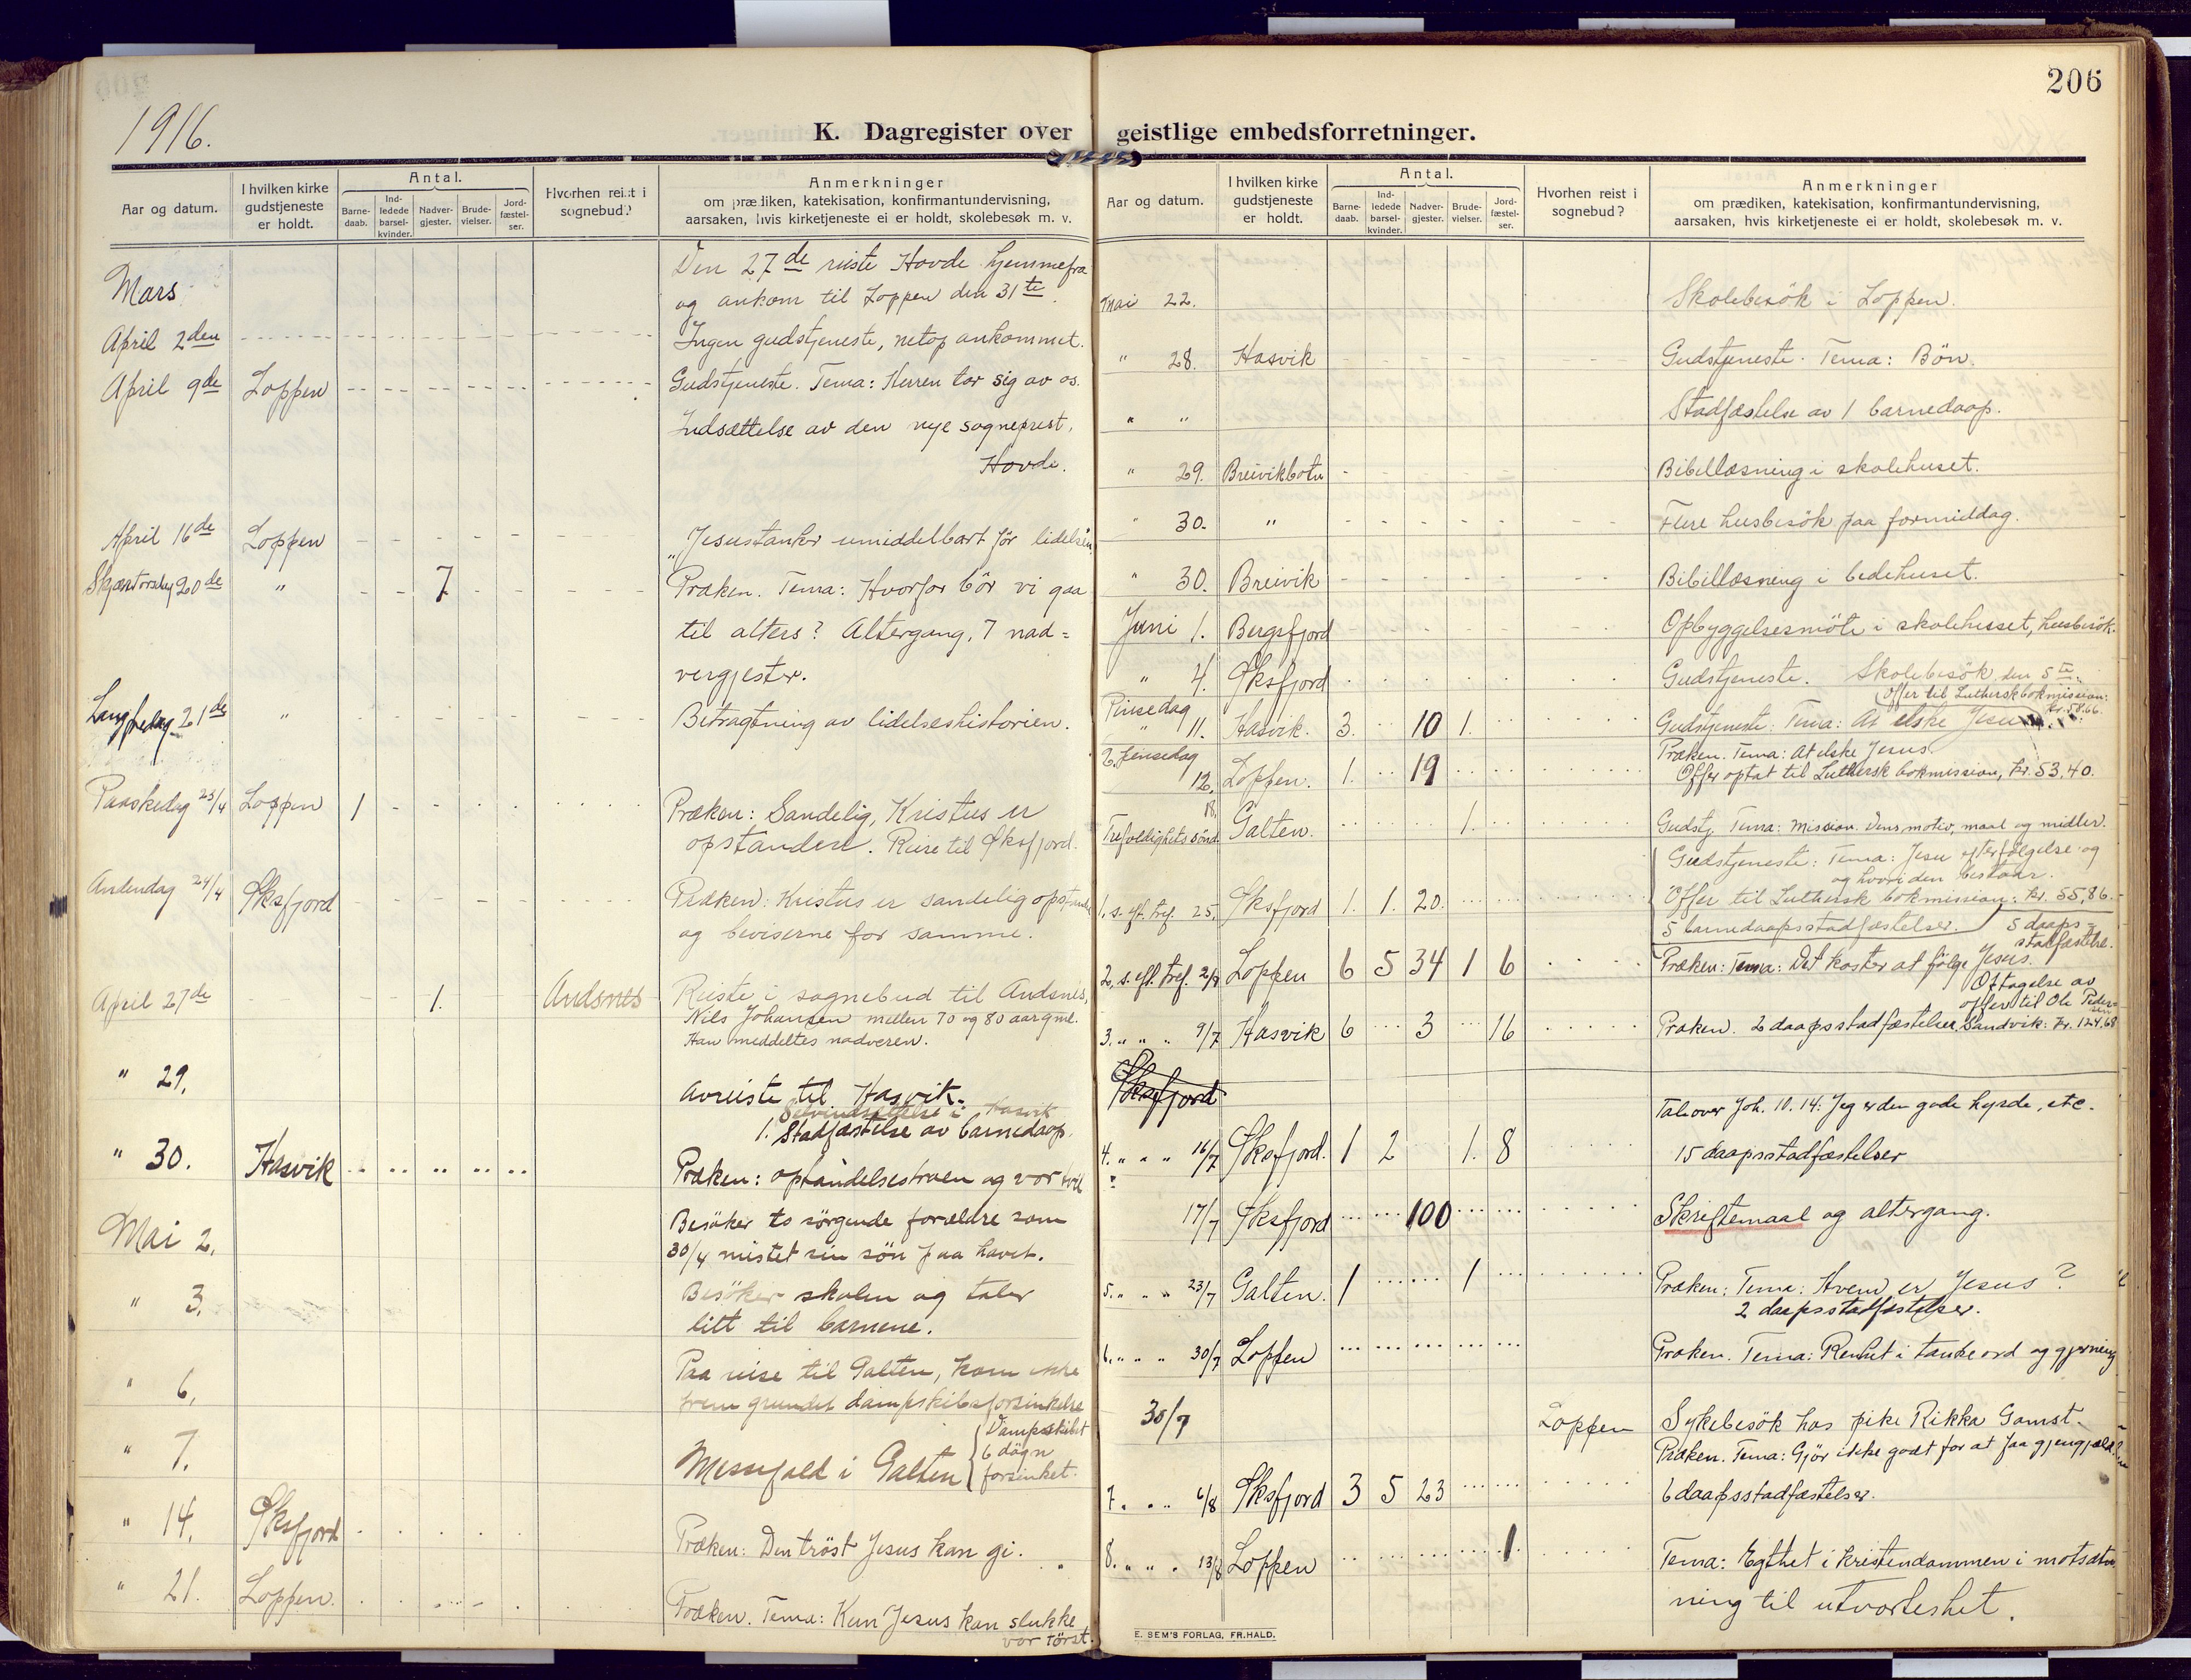 1916.
K. Dagregister over
Aar og datum.
I hvilken kirke gudstjeneste er holdt.
Antal.
Barne-daab.
Ind-ledede barsel-kvinder.
Nadver-gjester.
Brude-vielser.
Jord-fæstel-ser.
Hvorhen reist i sognebud?
Anmerkninger
om prædiken, katekisation, konfirmantundervisning,
aarsaken, hvis kirketjeneste ei er holdt, skolebesøk m. v.
Mars
Den 27de reiste Hovde hjemmefra
og ankom til Loppen den 31te.
April 2den
Ingen gudstjeneste, netop ankommet.
April 9de Loppen
Gudstjeneste. Tema: Herren tar sig av os.
Indsættelse av den nye sogneprest,
Hovde.
April 16de Loppen
"Jesustanker umiddelbart før
Skjærtorsdag 20de " 7
Præken. Tema: Hvorfor bör vi gaa
til alters? Altergang, 7 nad=
vergjester.
Langfredag 21de "
Betragtning av lidelseshistorien.
Paaskedag 23/4 Loppen 1
Præken: Sandelig, Kristus er
opstanden. Reise til Øksfjord.
Andendag 24/4 Øksfjord
Præken: Kristus er sandelig
og beviserne for samme.
April 27de 1. Andsnes
Reiste i sognebud til Andsnes,
Nils Johansen mellem 70 og 80 aar gml.
Han meddeltes nadveren.
" 29.
Avreiste til Hasvik.
Selvindsættelse i Hasvik
1. Stadfæstelse av barnedaap.
" 30. Hasvik
Præken: opstandelsestroen og vor tvil
Mai 2.
Besöker to sörgende forældre som
30/4 mistet sin sön paa havet.
" 3.
Besöker skolen og taler
litt til barnene.
" 6.
Paa reise til Galten, kom ikke
frem grundet dampskibsforsinkelse
" 7.
Messefald i Galten { Dampskibet
6 dögn
forsinket.
" 14. Øksfjord
Præken: Den tröst Jesus kan gi.
" 21. Loppen.
Præken. Tema: Kun Jesus kan slukke
vor törst.
206
geistlige embedsforretninger.
Aar og datum.
I hvilken kirke gudstjeneste er holdt.
Antal.
Barne-daab.
Ind-ledede barsel-kvinder.
Nadver-gjester.
Brude-vielser.
Jord-fæstel-ser.
Hvorhen reist i sognebud?
Anmerkninger
om prædiken, katekisation, konfirmantundervisning,
aarsaken, hvis kirketjeneste ei er holdt, skolebesøk m. v.
Mai 22. Skolebesök i Loppen.
" 28. Hasvik Gudstjeneste. Tema: Bön.
" " Stadfæstelse av 1 barnedaap.
" 29. Breivikbotn Bibellæsning i skolehuset.
" 30. " Flere husbesök paa formiddag.
" 30. Breivik Bibellæsning i bedehuset.
Juni 1. Bergsfjord Opbyggelsesmöte i skolehuset, husbesök.
" 4. Øksfjord Gudstjeneste. Skolebesök den 5te.
Offer til Luthersk bokmission:
kr. 58.66.
Pinsedag
" 11. Hasvik. 3. 10 1. Gudstjeneste: Tema: At elske Jesus
2. pinsedag
12. Loppen. 1. 19
Præken. Tema: At elske Jesus.
Offer optat til Luthersk bokmission, kr. 53,40.
18.
Trefoldighets sönd. Galten. 1. Gudstj. Tema: Mission. Dens motiv, maal og midler.
Gudstjeneste: Tema: Jesu efterfölgelse og
og hvori den bestaar.
1. s. eft. tref. 25. Øksfjord 1. 1. 20. Offer til Luthersk bokmission: kr. 55,86.
5 barnedaapsstadfæstelser. 5 daaps-
stadfæstelse.
2. s. eft. tref. 2/7 Loppen 6 5 34 1 6 Præken: Tema: Det koster at fölge Jesus.
Optagelse av
offer til Ole Peder-
sen
3. " " " 9/7 Hasvik 6 3 16 Præken. 2 daapsstadfæstelser. Sandvik: kr. 124,68
Øksfjord
Tale over Joh. 10. 14: Jeg er den gode hyrde, etc.
4. " " " 16/7 Øksfjord. 1 2 1. 8 15 daapsstadfæstelser
17/7 Øksfjord 100 Skriftemaal og altergang.
5. " " " 23/7 Galten. 1 1 Præken: Tema: Hvem er Jesus?
2 daapsstadfæstelser.
6. " " " 30/7 Loppen Præken. Tema: Renhet i tanke ord og gjerning
30/7 Loppen Sykebesök hos pike Rikka Gamst.
Præken. Tema: Gjör ikke godt for at faa gjengjæld
7. " " " 6/8 Øksfjord 3 5 23 6 daapsstadfæstelser.
8. " " " 13/8 Loppen 1 Tema: Egthet i kristendommen i motsæt
ning til utvorteshet.
E. SEM'S FORLAG, FR.HALD.